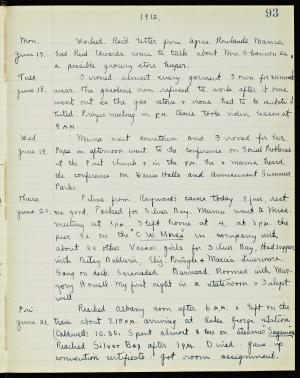 93
1912.
Mon. Worked. Rec'd letter from Agnes Rowlands. Mama
June 17. had Red Edwards come to talk about Mrs. Shannon as
a possible grocery store keeper.
Tues. I ironed almost every garment I own for summer
June 18. wear. The gasoline iron refused to work after it once
went out so the gas stove + irons had to be
Prayer meeting in P.M. Clare took violin lesson at
9 A.M.
Wed Mama went downtown and I ironed for her
June 19. Papa in afternoon went to the conference on Social Problems
at the First church + in the P.M. he + mama heard
the conference on Dance Halls and Amusement Summer
Parks.
Thurs. Films from Raymond's came today 3 pair, rest
June 20. no good Packed for Silver Bay. Mama went to Miss.
meeting at 3 P.M. I left home at 4, at 5 P.M. the
pier 32 on the "C. W. Morse" in company with
about 20 other Vassar girls for Silver Bay. Had supper
with Betsy Baldwin, Eliz. Pringle + Marie Livermore.
Sang on deck. Serenaded Barnard. Roomed with Mar-
gery Howell. My first night in a stateroom + I slept
well
Fri. Reached Albany soon after 6 A.M. + left on the
June 21. train about 7.15 A.M. arriving at Lake George station
(Caldwell) 10.20. Spent almost 3 hrs on steamer Sagamore
Reached Silver Bay after 1 P.M. Dined gave up
convention certificate + got room assignment.